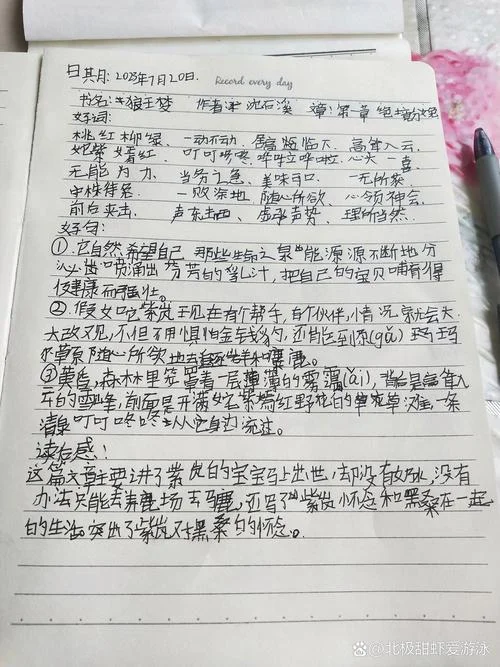 日其月:2023年7月20日.
Record every day
书名:《狼王梦 作者:沈石溪 文章:第一章
好词:
桃红柳绿、一动不动、居高临下、高耸入云、
姹紫嫣红、叮叮咚咚、哗啦哗啦、心头一喜、
无能为力、当务之急、美味可口、一无所获
守株待兔、一败涂地、随心所欲、心领神会、
前后夹击、声东击西、虚张声势、理所当然、
好句:
①、它自然希望自己那些生命之泉能源源不断地分
泌出喷涌出芬芳的乳汁,把自己的宝贝哺育得
健康而强壮。
②、假如紫岚现在有个帮手,有个伙伴,情况就会大
大改观,不但不用惧怕金钱豹,还能到尕(gǎ)玛
草原随心所欲地去
③黄昏,森林里笼罩着一层薄薄的雾霭(ǎi),背后是高耸入
云的雪峰,前面是开满姹紫嫣红野花的草滩一条
清泉叮叮咚咚从它身边流过。
读后感:
这篇文章主要讲了紫岚的宝宝马上出世,却没有奶水,没有
办法只能去养鹿场去马鹿,还写了紫岚怀念和黑桑在一起
的生活。突出了紫岚对黑桑的怀念。
@北极甜虾爱游泳